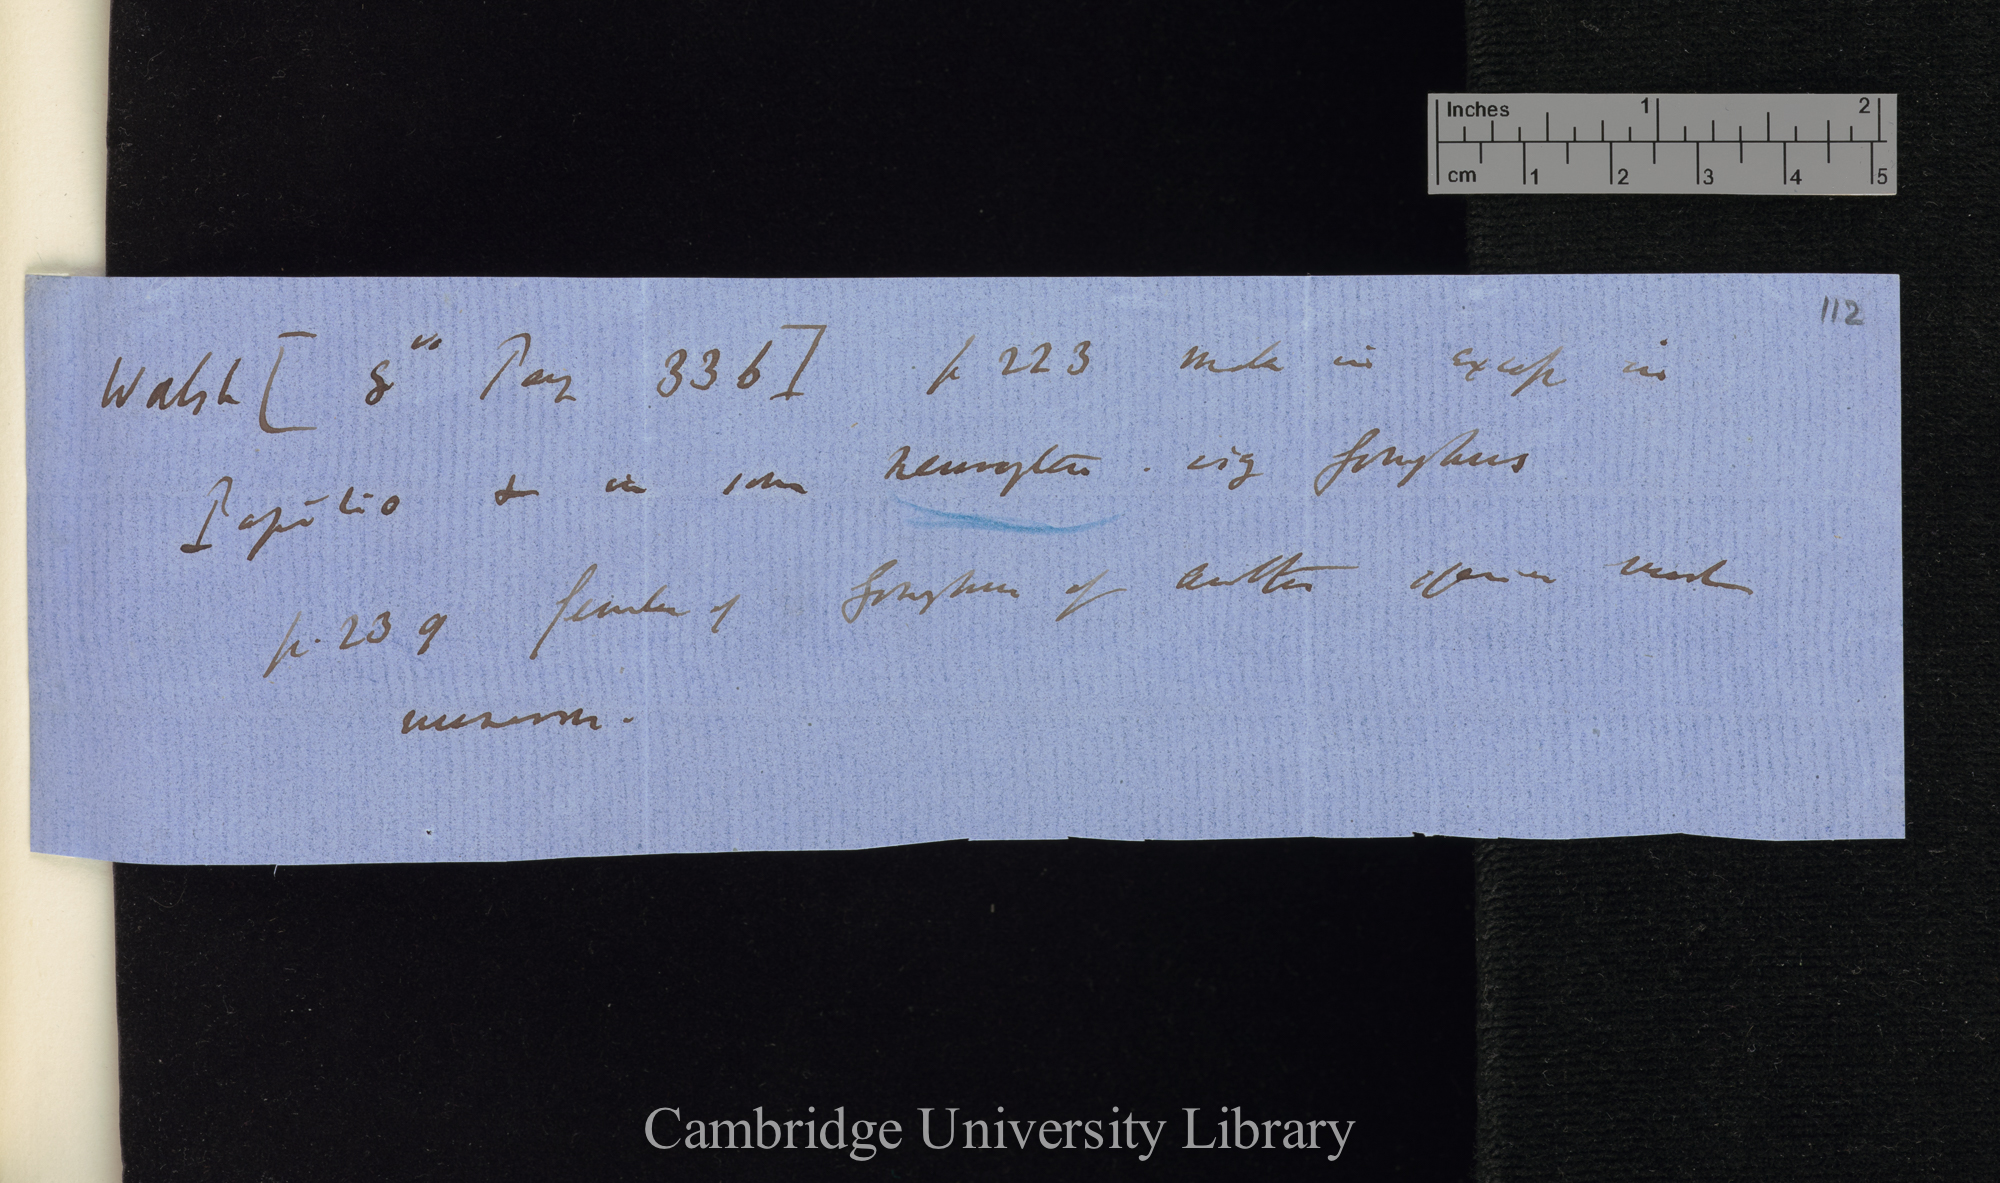 112
Walsh [8vo Pag 336] p 223 male in excess in
Papilio & in some neuroptera. viz Gomphus
p. 239 females of Gomphus of another species much
numerous.
Inches 1 2
cm 1 2 3 4 5
Cambridge University Library